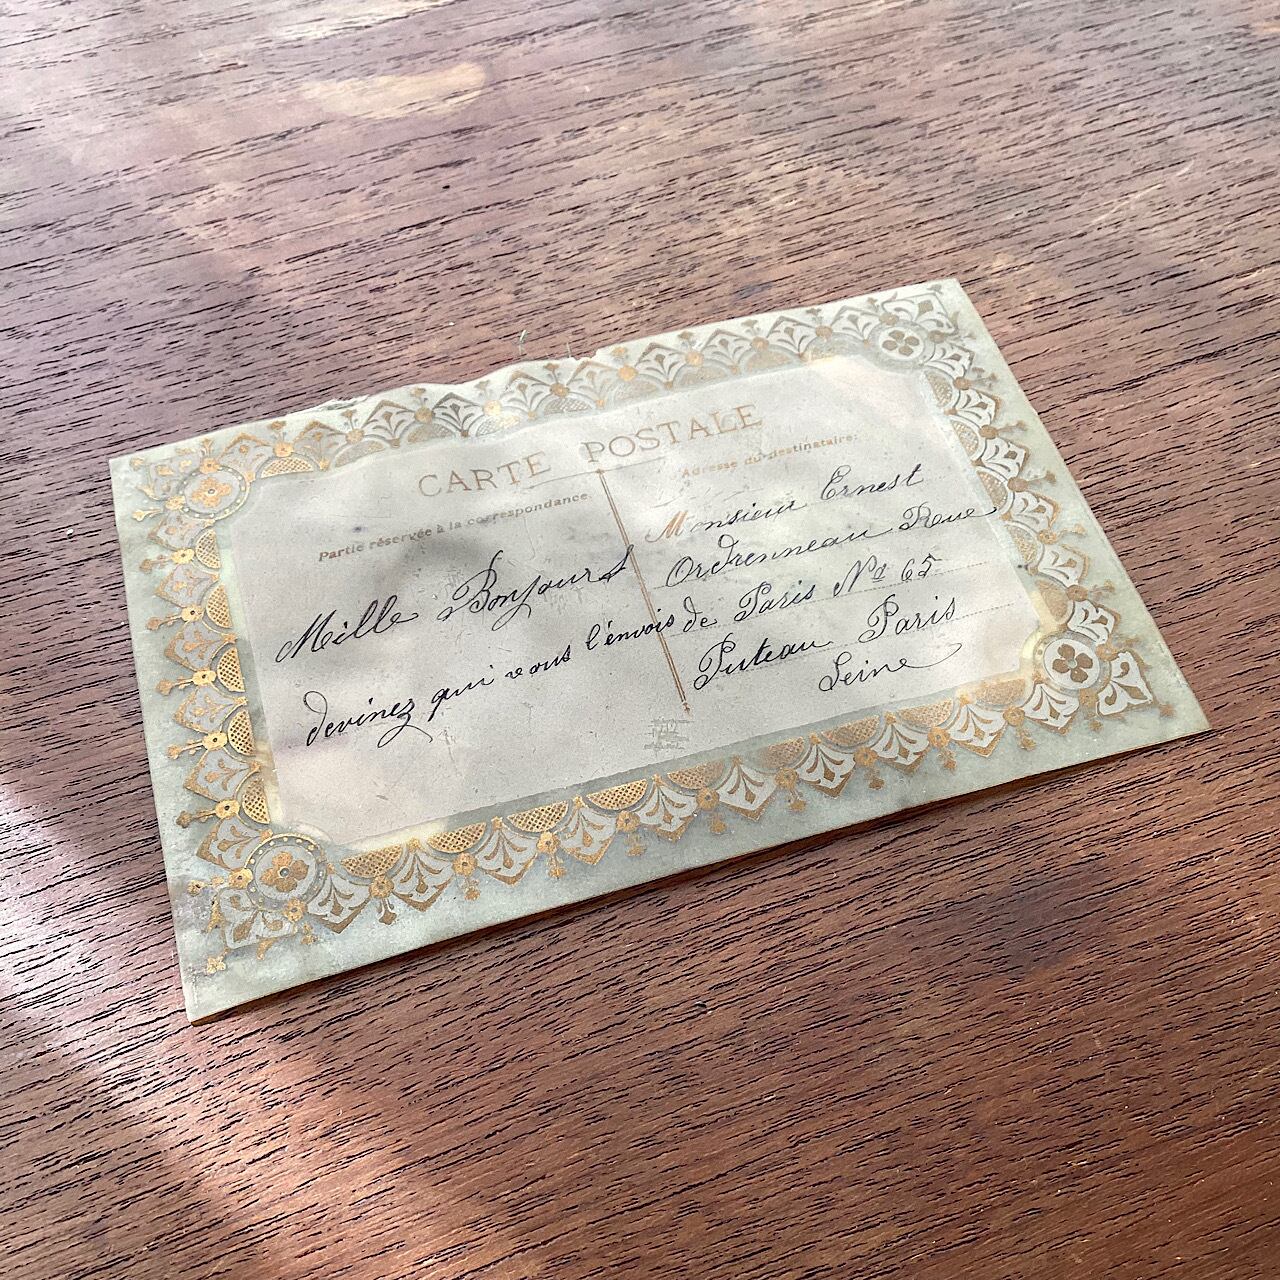 CARTE POSTALE
Partie réservée à la correspondance.
Adresse du destinataire:
Mille Bonjours
devinez qui vous l'énvois
Monsieur Ernest
Ordrenneau Rue
de Paris No 65
Puteau Paris
Seine